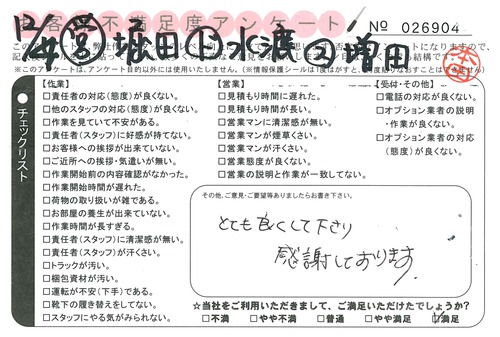 お客様不満足度アンケート No 026904
12/4 営 堀田 ㊤水濃 ㋜増田
チェックリスト
【作業】
□責任者の対応(態度)が良くない。
□他のスタッフの対応(態度)が良くない。
□作業を見ていて不安がある。
□責任者(スタッフ)に好感が持てない。
□お客様への挨拶が出来ていない。
□ご近所への挨拶・気遣いが無い。
□作業開始前の内容確認がなかった。
□作業開始時間が遅れた。
□荷物の取り扱いが雑である。
□お部屋の養生が出来ていない。
□作業時間が長すぎる。
□責任者(スタッフ)に清潔感が無い。
□責任者(スタッフ)が汗くさい。
□トラックが汚い。
□梱包資材が汚い。
□運転が不安(下手)である。
□靴下の履き替えをしてない。
□スタッフにやる気がみられない。
【営業】
□見積もり時間に遅れた。
□見積もり時間が長い。
□営業マンに清潔感が無い。
□営業マンが煙草くさい。
□営業マンが汗くさい。
□営業態度が良くない。
□営業の説明と作業が一致してない。
【受付・その他】
□電話の対応が良くない。
□オプション業者の説明
・作業が良くない。
□オプション業者の対応
(態度)が良くない。
その他、ご意見・ご要望等ありましたらお書き下さい。
とても良くして下さり
感謝しております
☆当社をご利用いただきまして、ご満足いただけたでしょうか?
□不満 □やや不満 □普通 □やや満足 ☑満足